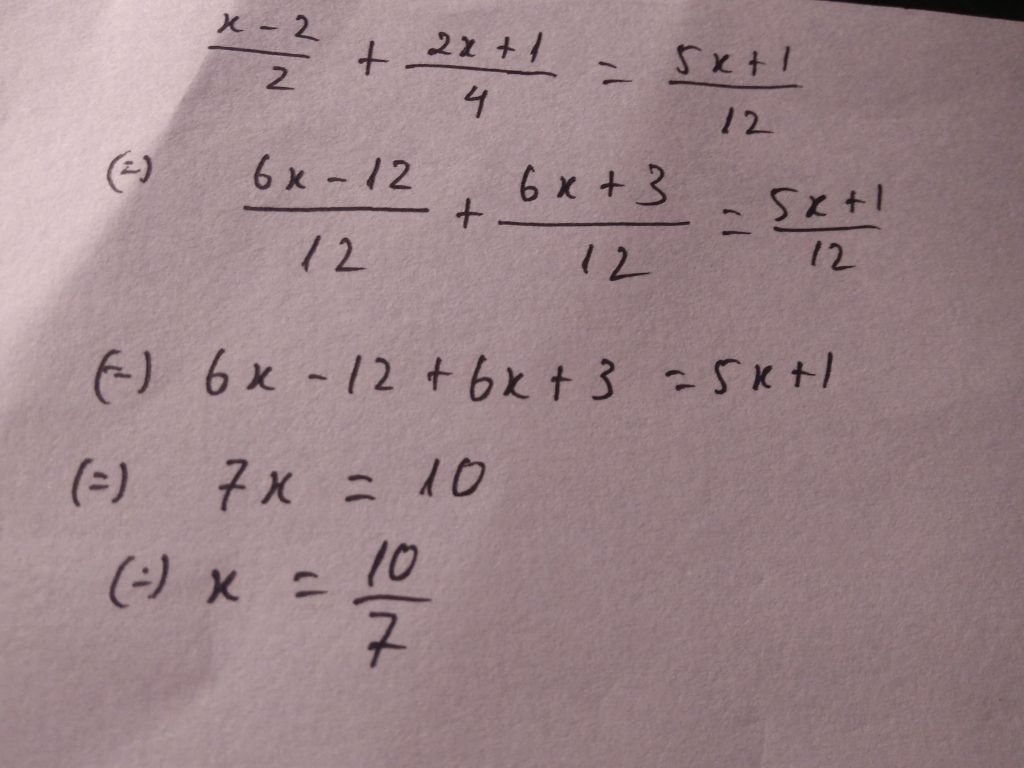 x - 2 / 2 + 2x + 1 / 4 = 5x + 1 / 12
(=) 6x - 12 / 12 + 6x + 3 / 12 = 5x + 1 / 12
(=) 6x - 12 + 6x + 3 = 5x + 1
(=) 7x = 10
(=) x = 10 / 7